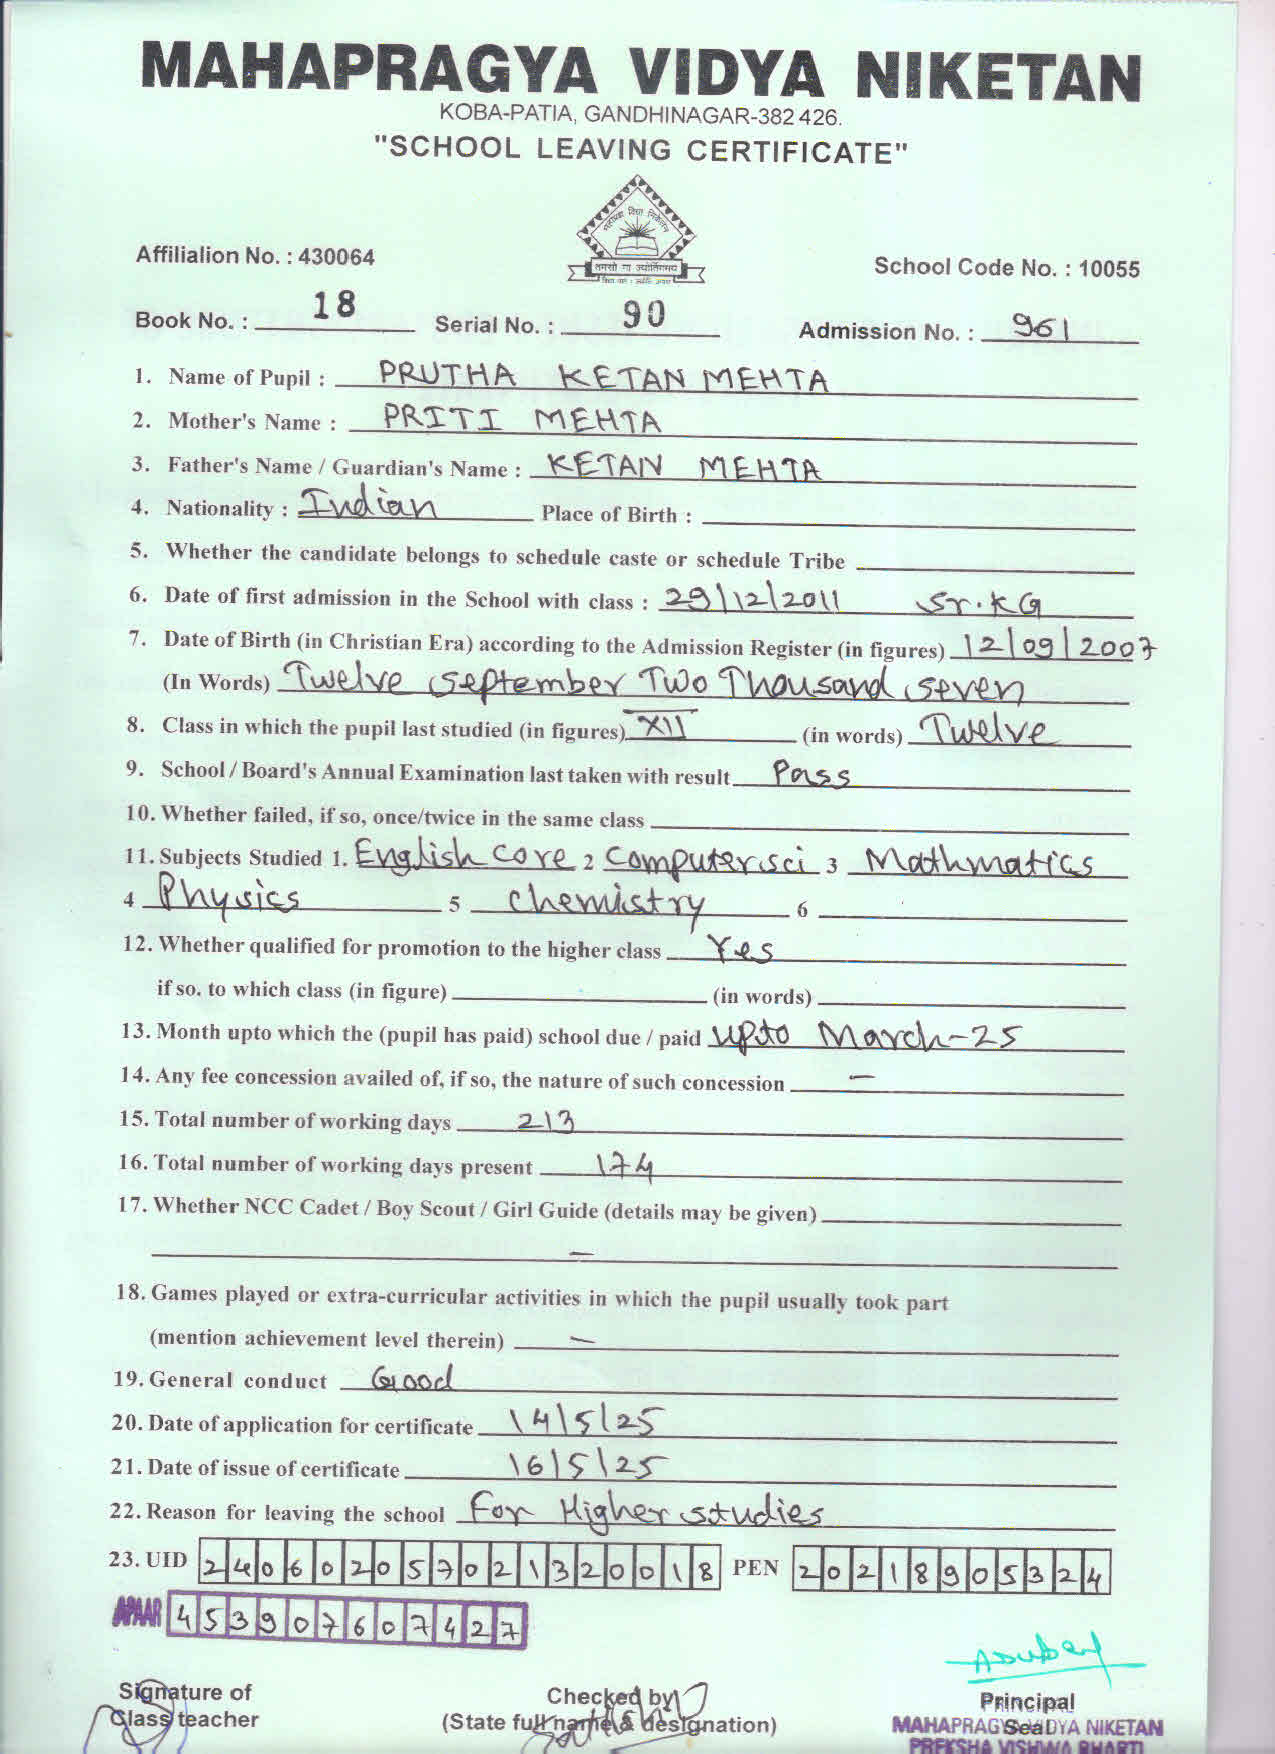 MAHAPRAGYA VIDYA NIKETAN
KOBA-PATIA, GANDHINAGAR-382 426.
"SCHOOL LEAVING CERTIFICATE"
महाप्रज्ञ विद्या निकेतन
तमसो मा ज्योतिर्गमय
Affilialion No. : 430064
School Code No. : 10055
Book No. : 18 Serial No. : 90 Admission No. : 961
1. Name of Pupil : PRUTHA KETAN MEHTA
2. Mother's Name : PRITI MEHTA
3. Father's Name / Guardian's Name : KETAN MEHTA
4. Nationality : Indian Place of Birth :
5. Whether the candidate belongs to schedule caste or schedule Tribe
6. Date of first admission in the School with class : 29/12/2011 Sr.KG
7. Date of Birth (in Christian Era) according to the Admission Register (in figures) 12/09/2007
(In Words) Twelve September Two Thousand seven
8. Class in which the pupil last studied (in figures) XII (in words) Twelve
9. School / Board's Annual Examination last taken with result Pass
10. Whether failed, if so, once/twice in the same class
11. Subjects Studied 1. English Core 2 Computer sci 3 Mathmatics
4 Physics 5 chemistry 6
12. Whether qualified for promotion to the higher class Yes
if so. to which class (in figure) (in words)
13. Month upto which the (pupil has paid) school due / paid upto March-25
14. Any fee concession availed of, if so, the nature of such concession –
15. Total number of working days 213
16. Total number of working days present 174
17. Whether NCC Cadet / Boy Scout / Girl Guide (details may be given)
–
18. Games played or extra-curricular activities in which the pupil usually took part
(mention achievement level therein) –
19. General conduct Good
20. Date of application for certificate 14/5/25
21. Date of issue of certificate 16/5/25
22. Reason for leaving the school For Higher studies
23. UID 240602057021320018 PEN 20218905324
APAAR 453907607427
Signature of
Class teacher
Checked by
(State full name & designation)
Principal
Seal
PRINCIPAL
MAHAPRAGYA VIDYA NIKETAN
PREKSHA VISHWA BHARTI